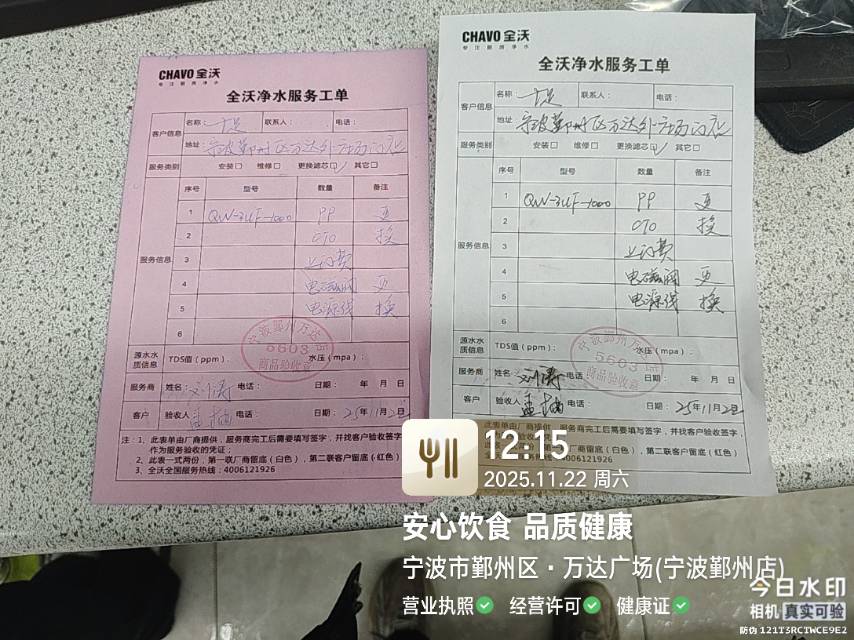 CHAVO 全沃
专注厨房净水
全沃净水服务工单
客户信息
名称：
联系人：
电话：
地址：宁波鄞州区万达外广场门店
服务类别
安装□ 维修□ 更换滤芯☑ 其它□
服务信息
序号 型号 数量 备注
1 QW-3UF-1000 PP 更
2 CTO 换
3 上门费
4 电磁阀 更
5 电源线 换
6
源水水质信息
TDS值（ppm）： 水压（mpa）：
宁波鄞州万达店
5603
商品验收章
服务商 姓名：刘涛 电话： 日期： 年 月 日
客户 验收人： 电话： 日期：25年11月22日
注：1、此表单由厂商提供，服务商完工后需要填写签字，并找客户验收签字
作为服务验收的凭证；
2、此表一式两份，第一联厂商留底（白色），第二联客户留底（红色）
3、全沃全国服务热线：4006121926
CHAVO 全沃
专注厨房净水
全沃净水服务工单
客户信息
名称：
联系人：
电话：
地址：宁波鄞州区万达外广场门店
服务类别
安装□ 维修□ 更换滤芯☑ 其它□
服务信息
序号 型号 数量 备注
1 QW-3UF-1000 PP 更
2 CTO 换
3 上门费
4 电磁阀 更
5 电源线 换
6
源水水质信息
TDS值（ppm）： 水压（mpa）：
宁波鄞州万达店
5603
商品验收章
服务商 姓名：刘涛 电话： 日期： 年 月 日
客户 验收人： 电话： 日期：25年11月22日
此表单由厂商提供，服务商完工后需要填写签字，并找客户验收签字
第一联厂商留底（白色），第二联客户留底（红色）
4006121926
12:15
2025.11.22 周六
安心饮食 品质健康
宁波市鄞州区·万达广场(宁波鄞州店)
营业执照 经营许可 健康证
今日水印
相机 真实可验
防伪 121T3RCTWCE9E2